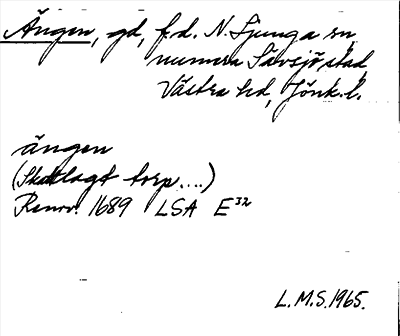 Ängen, gd, f.d. N. Ljunga sn,
numera Sävsjö stad,
Västra hd, Jönk. l.
ängen
(Skattlagt torp....)
Renov. 1689 LSA E³²
L.M.S. 1965.